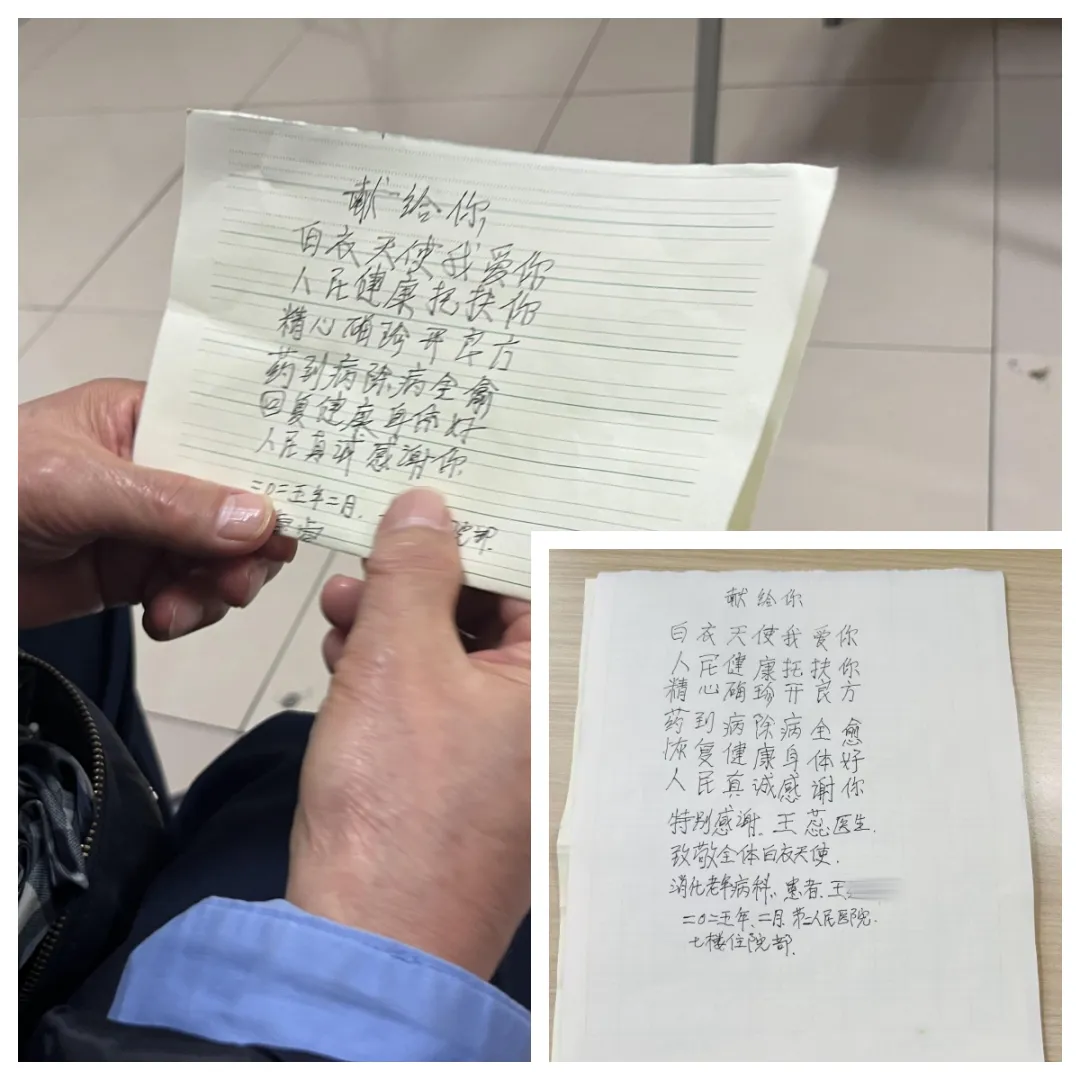 献给你
白衣天使我爱你
人民健康托扶你
精心确珍开良方
药到病除病全
回复健康身体好
人民真诚感谢你
二〇二五年二月.
院部.
献给你
白衣天使我爱你
人民健康托扶你
精心确珍开良方
药到病除病全愈
恢复健康身体好
人民真诚感谢你
特别感谢、王蕊医生.
致敬全体白衣天使.
消化老年病科、患者、王
二〇二五年、二月、第二人民医院.
七楼住院部.